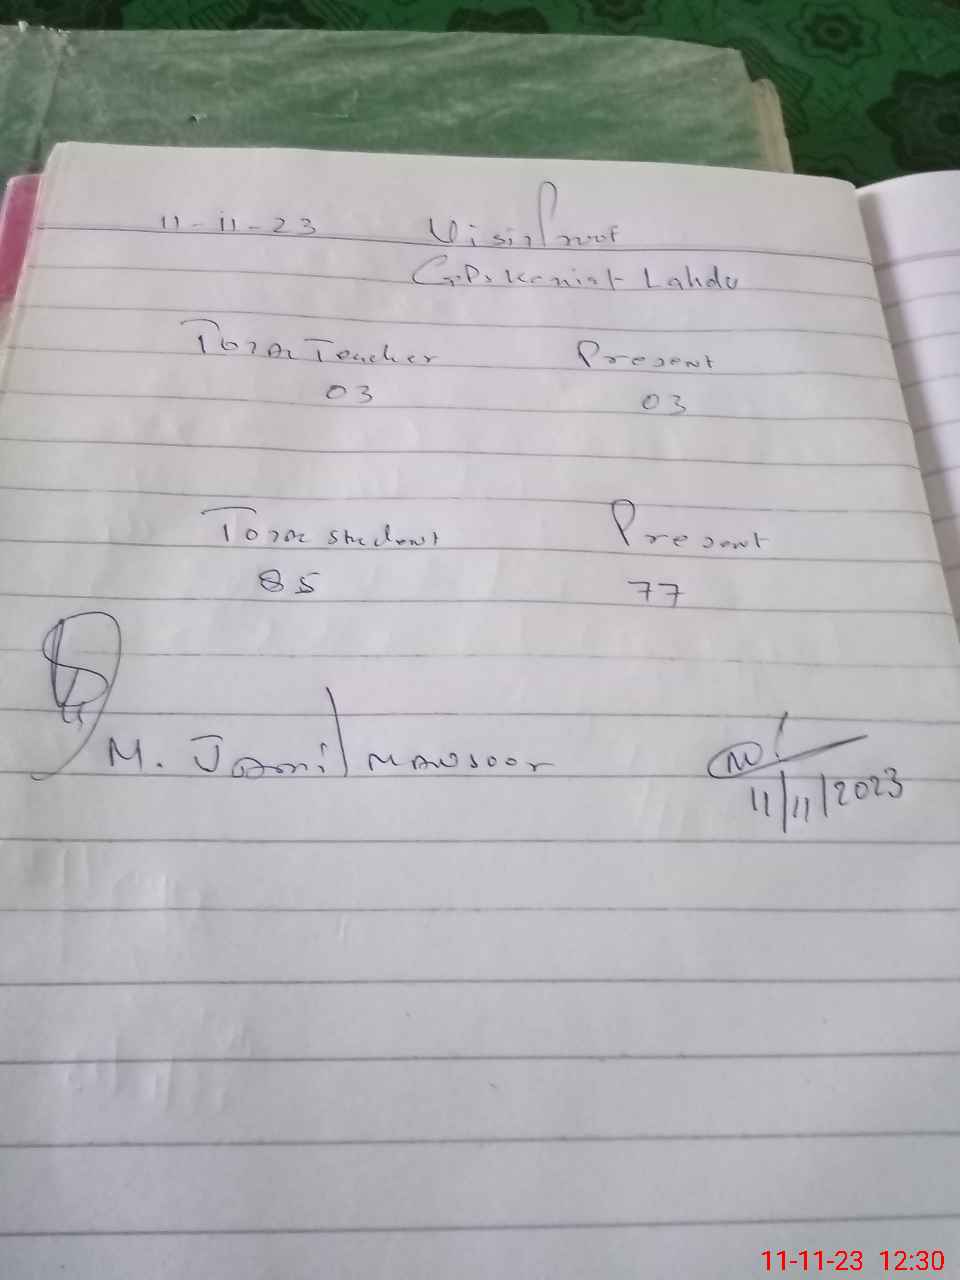 11-11-23 Visit Proof
G.P.S Kanist Lahdu
Total Teacher Present
03 03
Total Student Present
85 77
M. Jamil Mansoor
11/11/2023
11-11-23 12:30